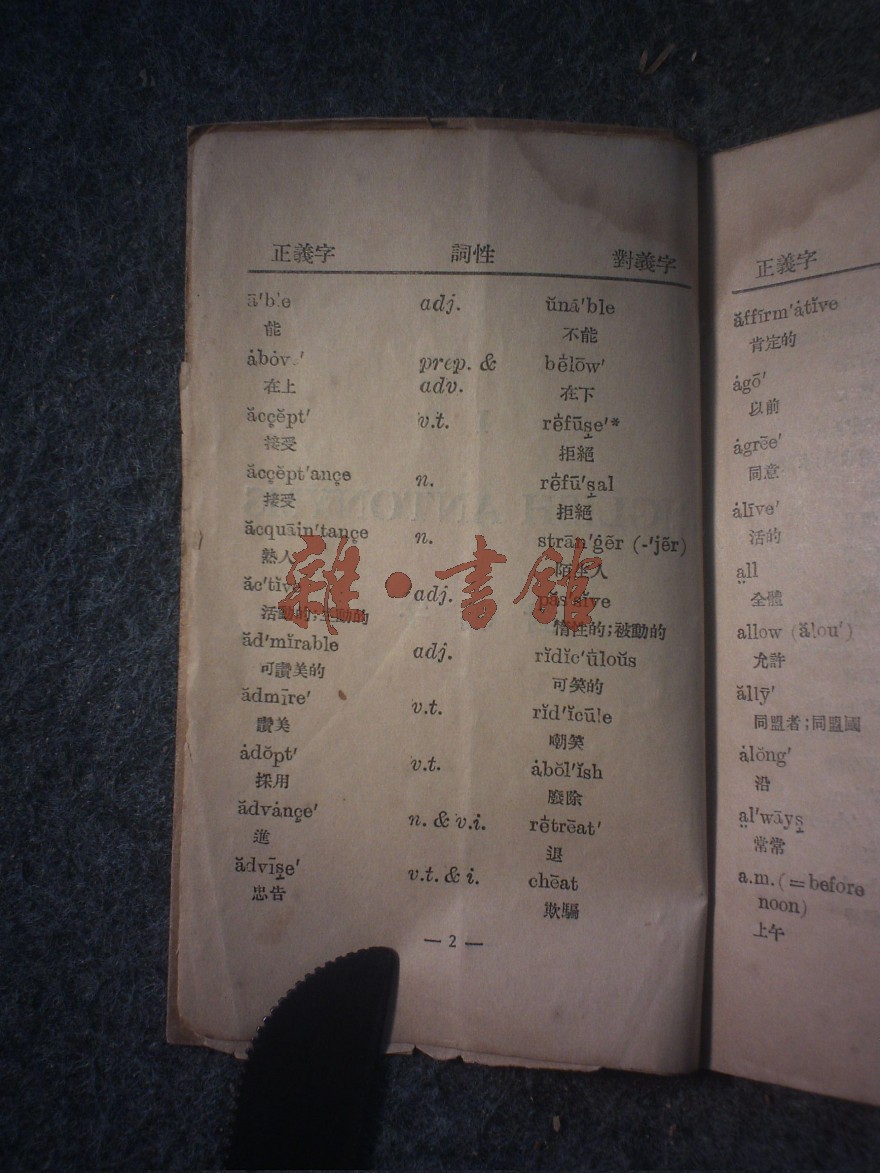 正義字 詞性 對義字
ā′ble adj. ŭnā′ble
能 不能
prep. & bėlōw′
在上 adv. 在下
ăcçĕpt′ v.t. rėfūṣe′*
接受 拒絕
ăcçĕpt′ançe n. rėfū′ṣal
接受 拒絕
ăcquāin′tançe n. strān′ġẽr (-′jẽr)
熟人 陌生人
ăc′tĭve adj. păs′sĭve
活動的;主動的 惰性的;被動的
ăd′mĭrable adj. rĭdĭc′ūloŭs
可讚美的 可笑的
ădmīre′ v.t. rĭd′ĭcūle
讚美 嘲笑
ȧdŏpt′ v.t. ȧbŏl′ĭsh
採用 廢除
ădvȧnçe′ n. & v.i. rėtrēat′
進 退
ădvīṣe′ v.t. & i. chēat
忠告 欺騙
— 2 —
雜·書館
正義字
ăffîrm′ȧtĭve
肯定的
ȧgō′
以前
ȧgrēe′
同意
ȧlīve′
活的
a̤ll
全體
allow (ălou′)
允許
ăllȳ′
同盟者;同盟國
ȧlŏng′
沿
a̤l′wāyṣ
常常
a.m. (=before
noon)
上午